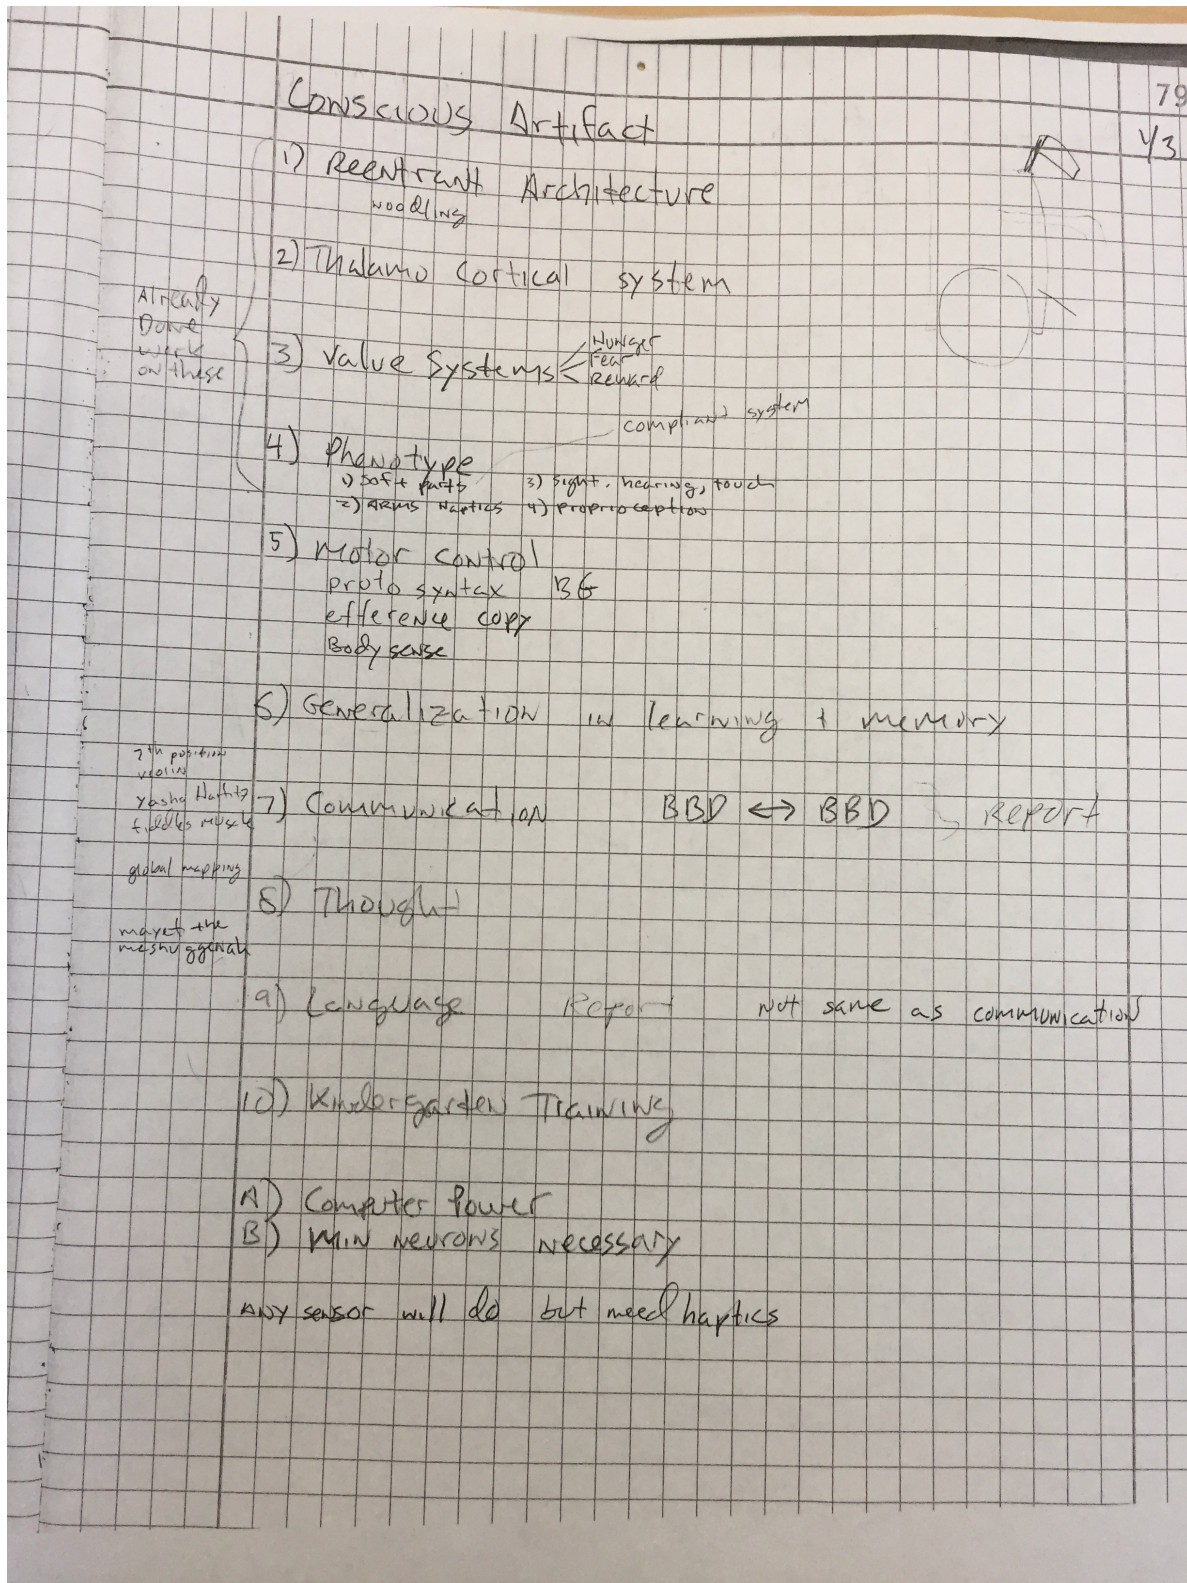 79
1/3
Conscious Artifact
1) Reentrant Architecture
noodling
2) Thalamo Cortical system
Already
Done
work
on these
3) Value Systems
Hunger
Fear
Reward
compliant system
4) Phenotype
1) soft parts 3) sight, hearing, touch
2) ARMS Haptics 4) proprioception
5) Motor control
proto syntax BG
efference copy
Body sense
6) Generalization in learning + memory
7th position
violin
yasha
fiddles muscle
7) Communication BBD ↔ BBD Report
global mapping
8) Thought
the
meshuggenah
9) Language Report Not same as communication
10) Kindergarten Training
A) Computer Power
B) Min neurons necessary
ANY sensor will do but need haptics